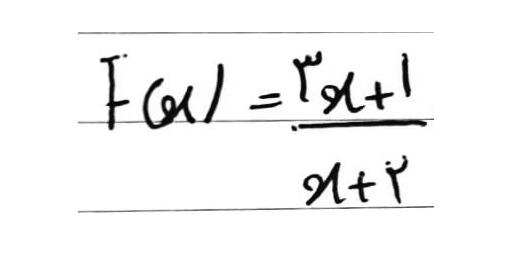 F(x) = ۳x+۱
x+۲